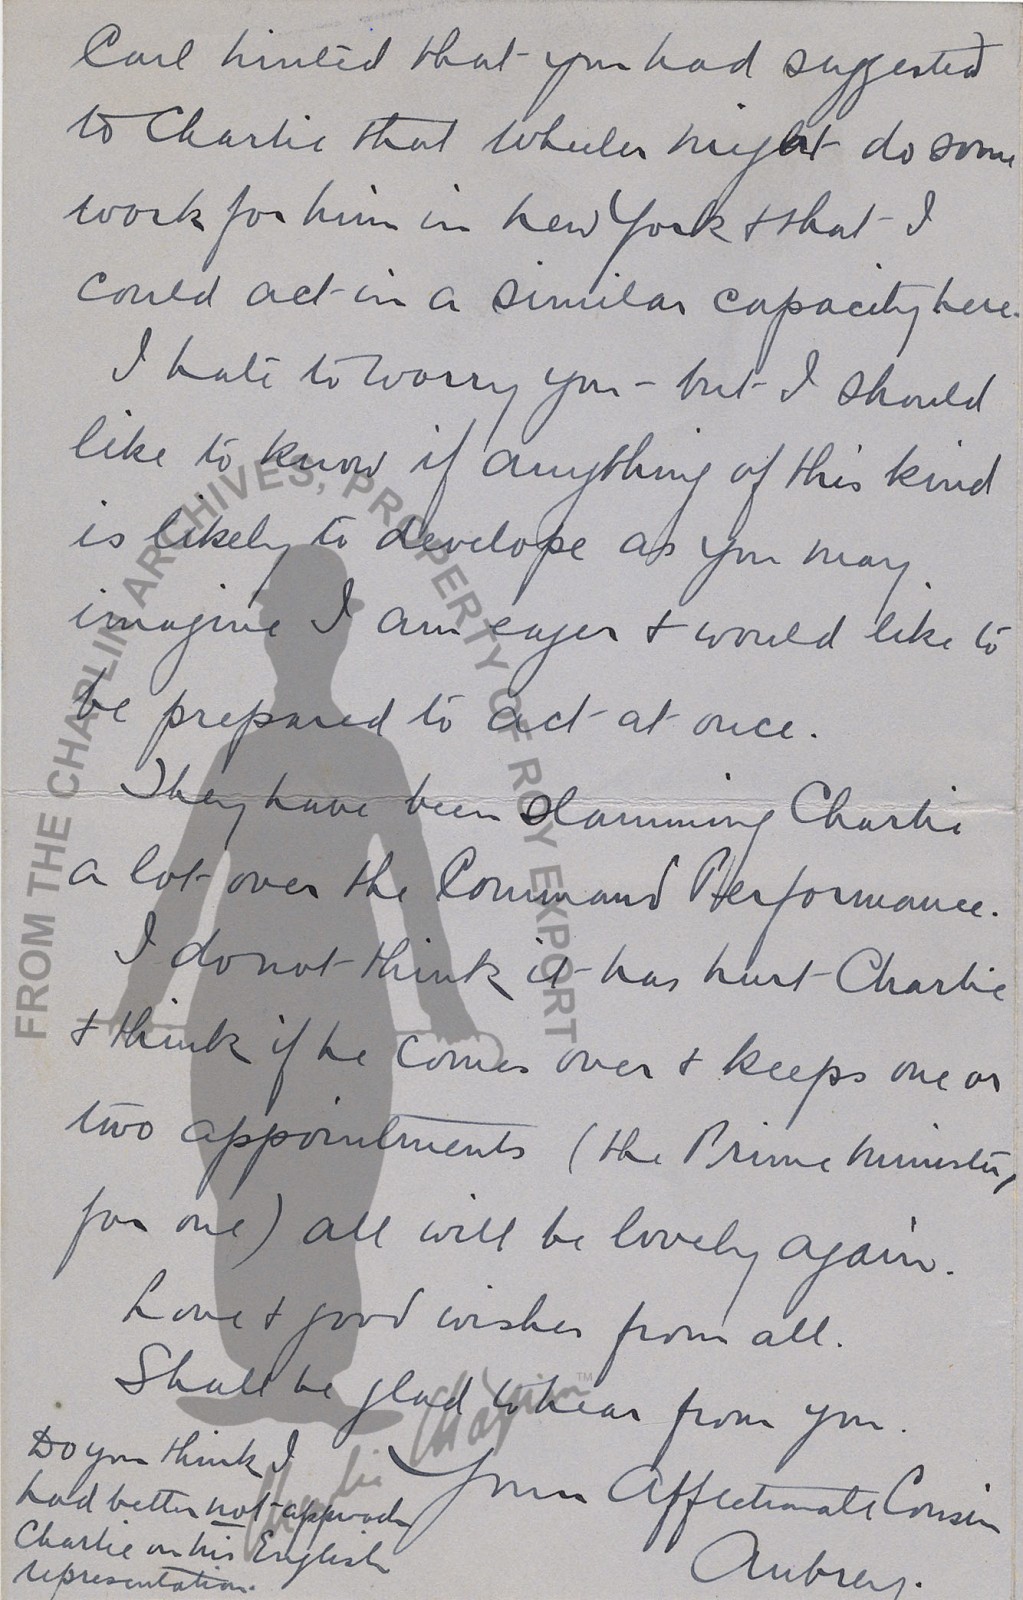 Carl hinted that you had suggested
to Charlie that Wheeler might do some
work for him in New York & that I
could act in a similar capacity here.
I hate to worry you – but I should
like to know if anything of this kind
is likely to develope as you may
imagine I am eager & would like to
be prepared to act at once.
They have been slamming Charlie
a lot over the Command Performance.
I do not think it has hurt Charlie
& think if he comes over & keeps one or
two appointments (the Prime Minister,
for one) all will be lovely again.
Love & good wishes from all.
Shall be glad to hear from you.
Your Affectionate Cousin
Aubrey.
Do you think I
had better not approach
Charlie on his English
representation.
FROM THE CHAPLIN ARCHIVES, PROPERTY OF ROY EXPORT
Charlie Chaplin™